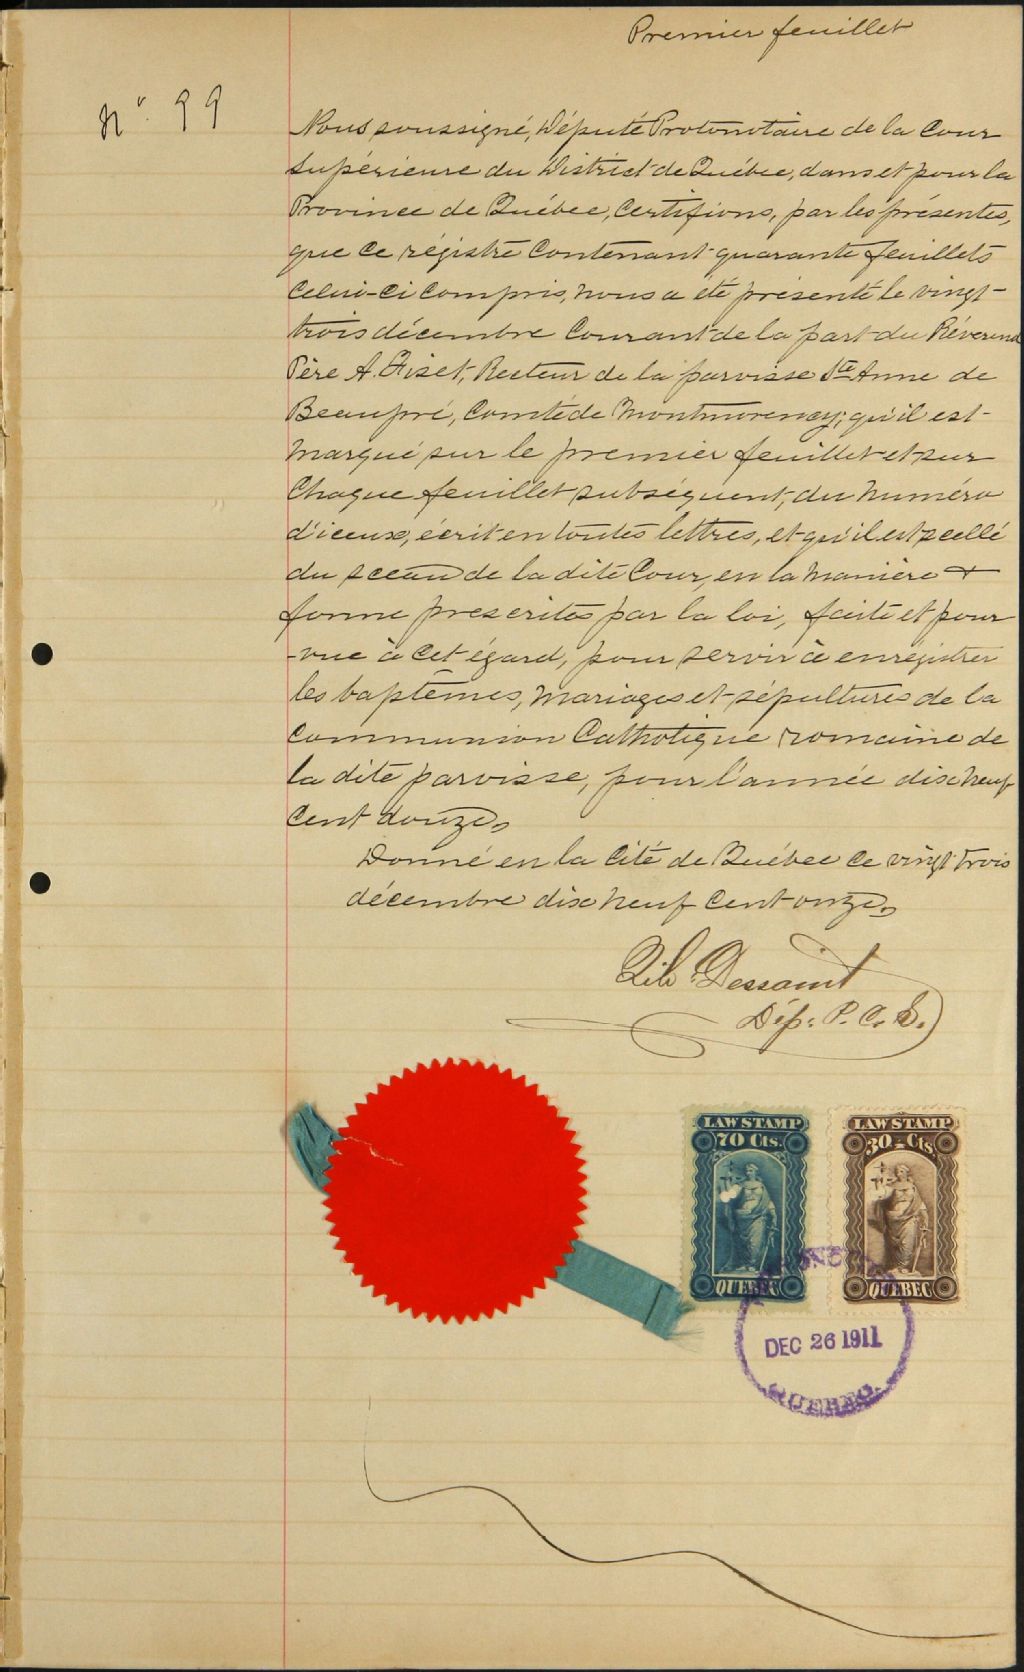 Premier feuillet
No. 99
Nous soussigné, Député Protonotaire de la Cour
Supérieure du District de Québec, dans et pour la
Province de Québec, Certifions, par les présentes,
que ce régistre Contenant quarante feuillets
Celui-Ci Compris, nous a été présenté le vingt-
trois décembre Courant de la part du Révérend
Père A. Fiset, Recteur de la paroisse Ste Anne de
Beaupré, Comté de Montmorency; qu'il est
marqué sur le premier feuillet et sur
Chaque feuillet subséquent, du numéro
d'iceux, écrit en toutes lettres, et qu'il est scellé
du sceau de la dite Cour, en la manière &
forme prescrites par la loi, faite et pour
-vue à cet égard, pour servir à enrégistrer
les baptêmes, mariages et sépultures de la
Communion Catholique romaine de
la dite paroisse, pour l'année dix neuf
Cent douze.
Donné en la Cité de Québec ce vingt trois
décembre dix neuf Cent onze.
Dessaint
Dép. P. C. S.
LAW STAMP
70 Cts.
QUEBEC
LAW STAMP
30 Cts.
QUEBEC
DEC 26 1911
QUEBEC.